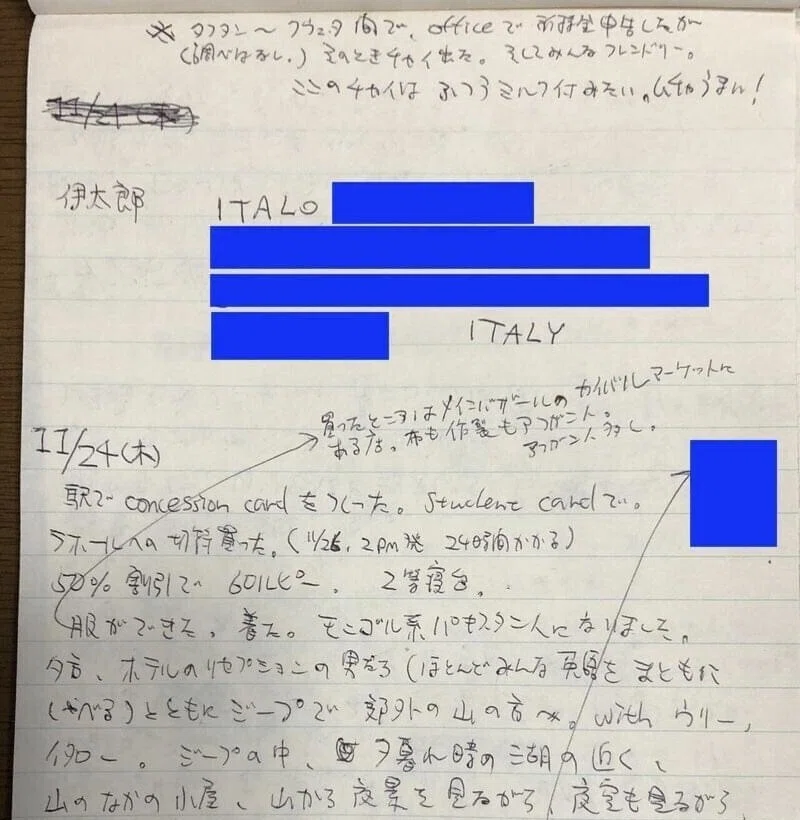 ※ タフタン〜クウェッタ間で、officeで所持金申告したが
(調べはなし。) そのときチャイ出た。そしてみんなフレンドリー。
ここのチャイは ふつうミルク付みたい。ムチャうまい!
11/24(木)
伊太郎
ITALO
ITALY
買ったところはメインバザールのカイバルマーケットに
ある店。布も作製もアフガン人。
アフガン人多し。
11/24(木)
駅でconcession cardをつくった。student cardで。
ラホールへの切符買った。(11/26, 2pm発 24時間かかる)
50%割引で 601ルピー。 2等寝台。
服ができた。着た。モンゴル系パキスタン人になりました。
夕方、ホテルのリセプションの男たち(ほとんどみんな英語をまともに
しゃべる)とともにジープで 郊外の山の方へ。with ウリー,
イタロー。ジープの中、夕暮れ時の湖の近く、
山のなかの小屋、山から夜景を見ながら、夜空も見ながら、